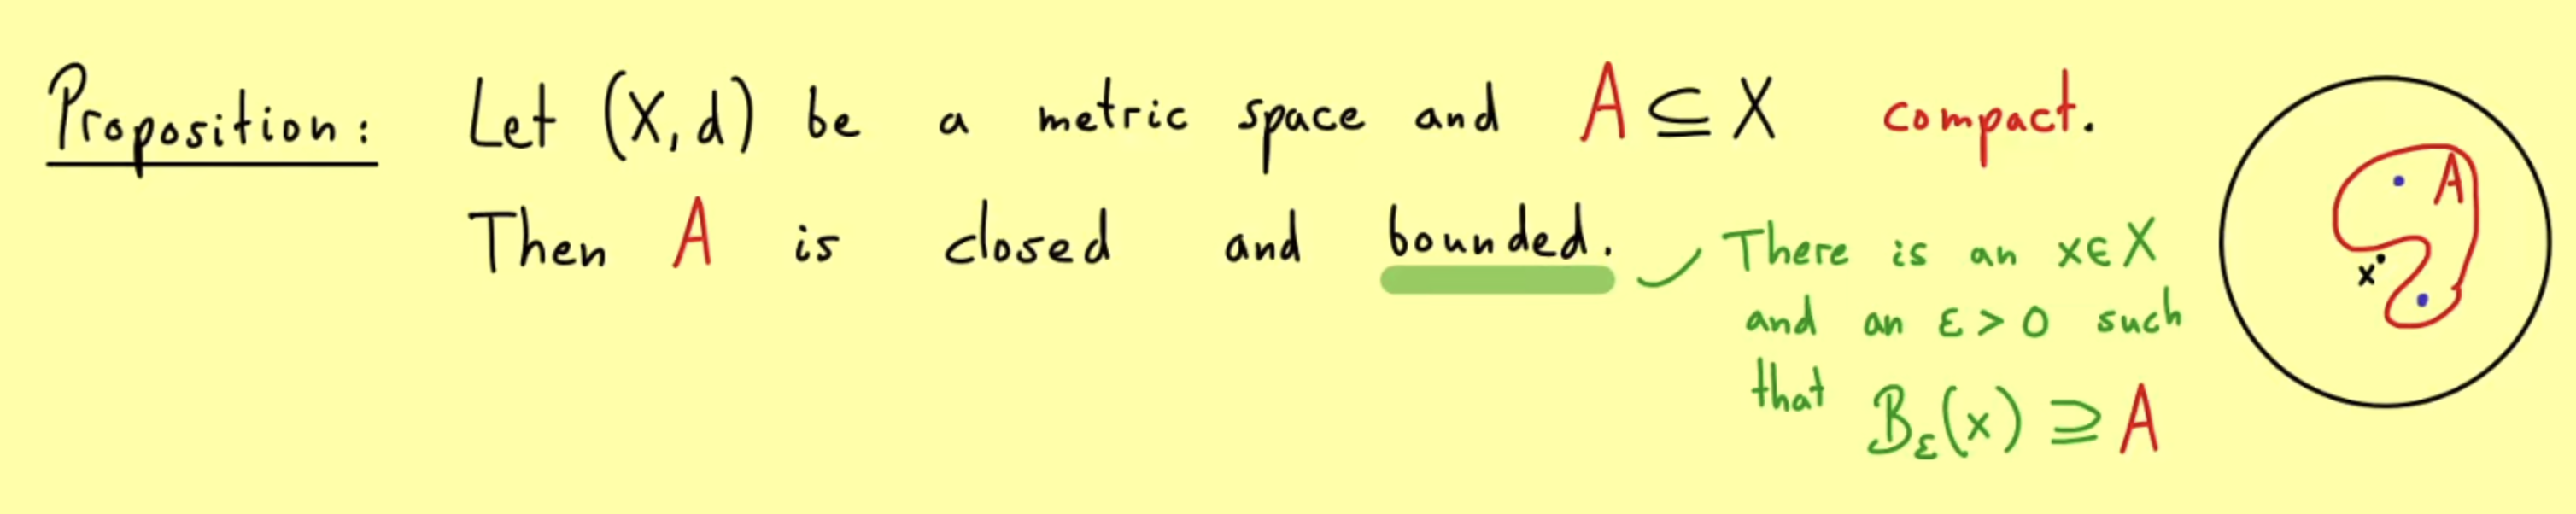 Proposition: Let (X,d) be a metric space and A ⊆ X compact.
Then A is closed and bounded.
There is an x∈X
and an ε > 0 such
that B_ε(x) ⊇ A
A
x